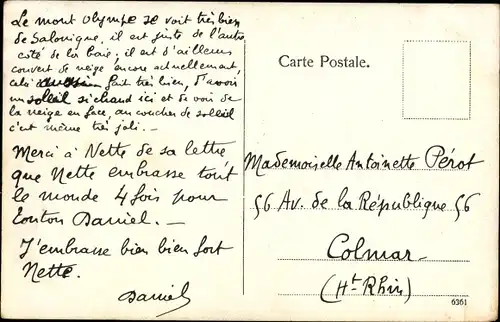 Le mont Olympe se voit très bien
de Salonique, il est juste de l'autre
côté de la baie, il est d'ailleurs
couvert de neige encore actuellement,
cela fait très bien, d'avoir
un soleil si chaud ici et de voir de
la neige en face, au coucher de soleil
c'est même très joli. —
Merci à Nette de sa lettre
que Nette embrasse tout
le monde 4 fois pour
Tonton Daniel. —
J'embrasse bien bien fort
Nette.
Daniel
Carte Postale.
Mademoiselle Antoinette Pérot
56 Av. de la République 56
Colmar
(Ht-Rhin)
6361